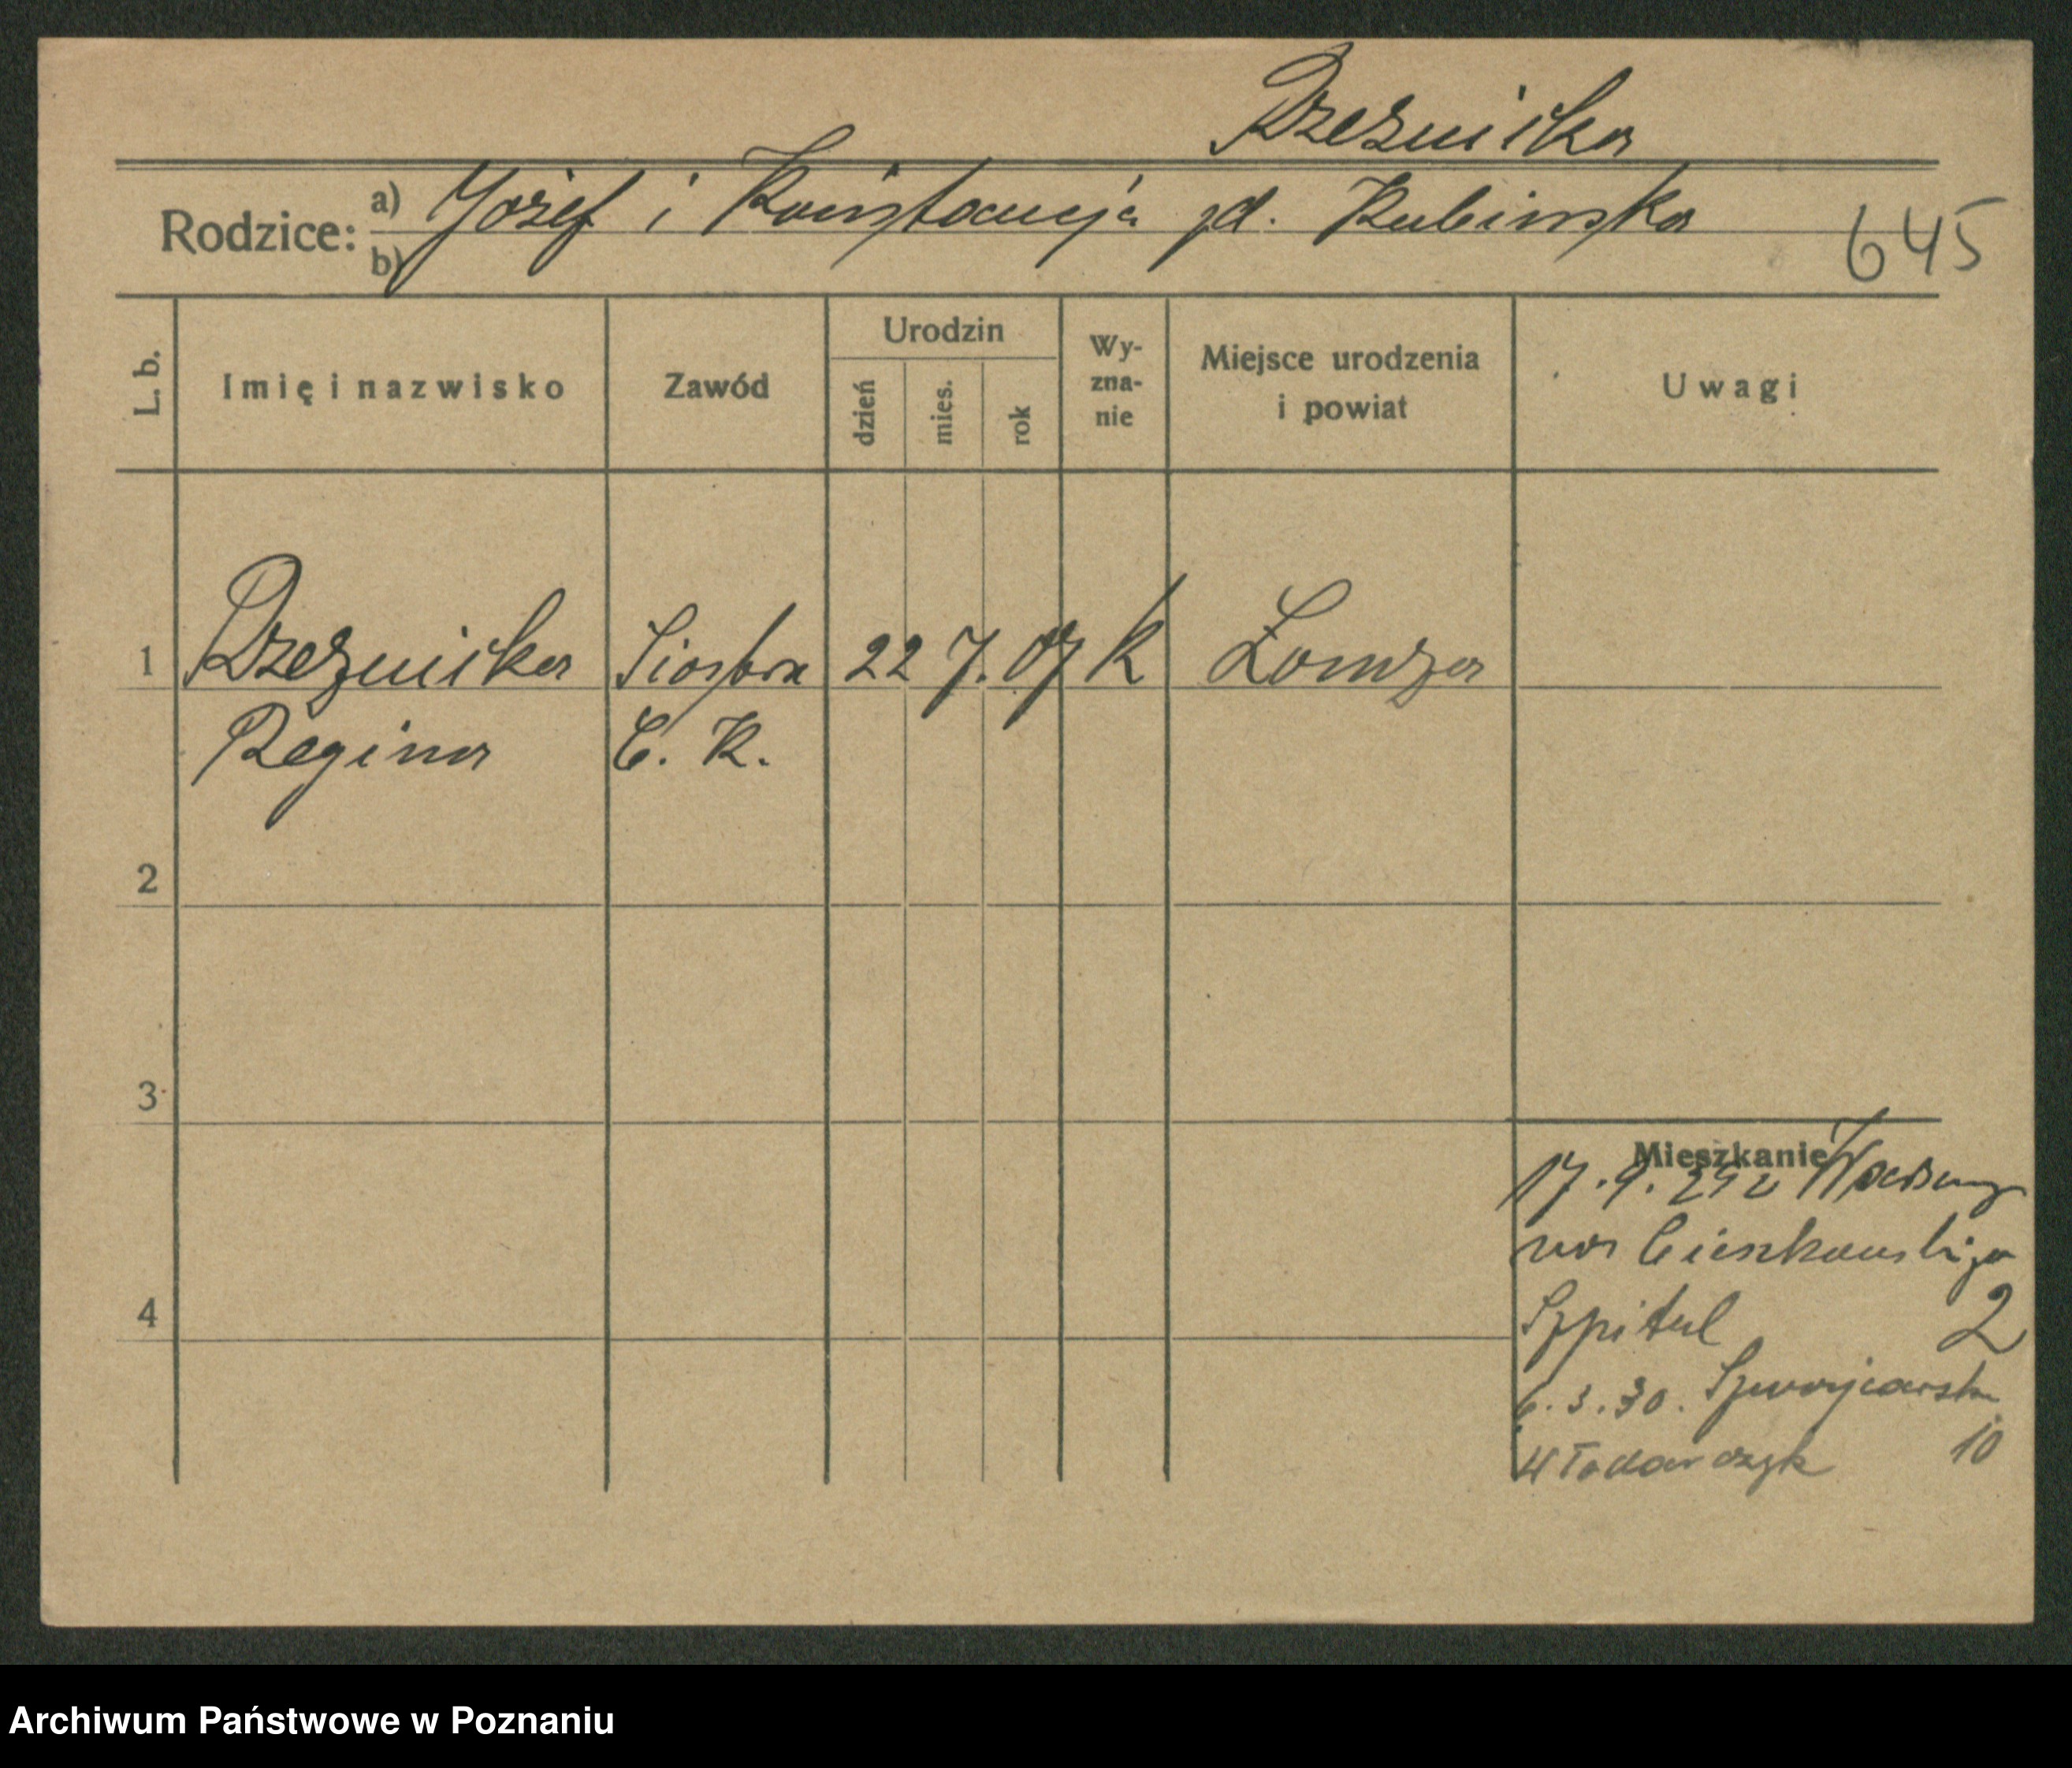 Rzeźnicka
Rodzice: a) Józef i Konstancja zd. Rubinska
b)
645
L. b.
Imię i nazwisko
Zawód
Urodzin
dzień
mies.
rok
Wy-
zna-
nie
Miejsce urodzenia
i powiat
Uwagi
1 Rzeźnicka Siostra 22 7. 07 K Łomża
Regina C. K.
2
3
4
Mieszkanie
17. 9. 29 z
na Cieszkowskiego
Szpital 2
6. 3. 30. Szwajcarska
Włodarczyk 10
Archiwum Państwowe w Poznaniu